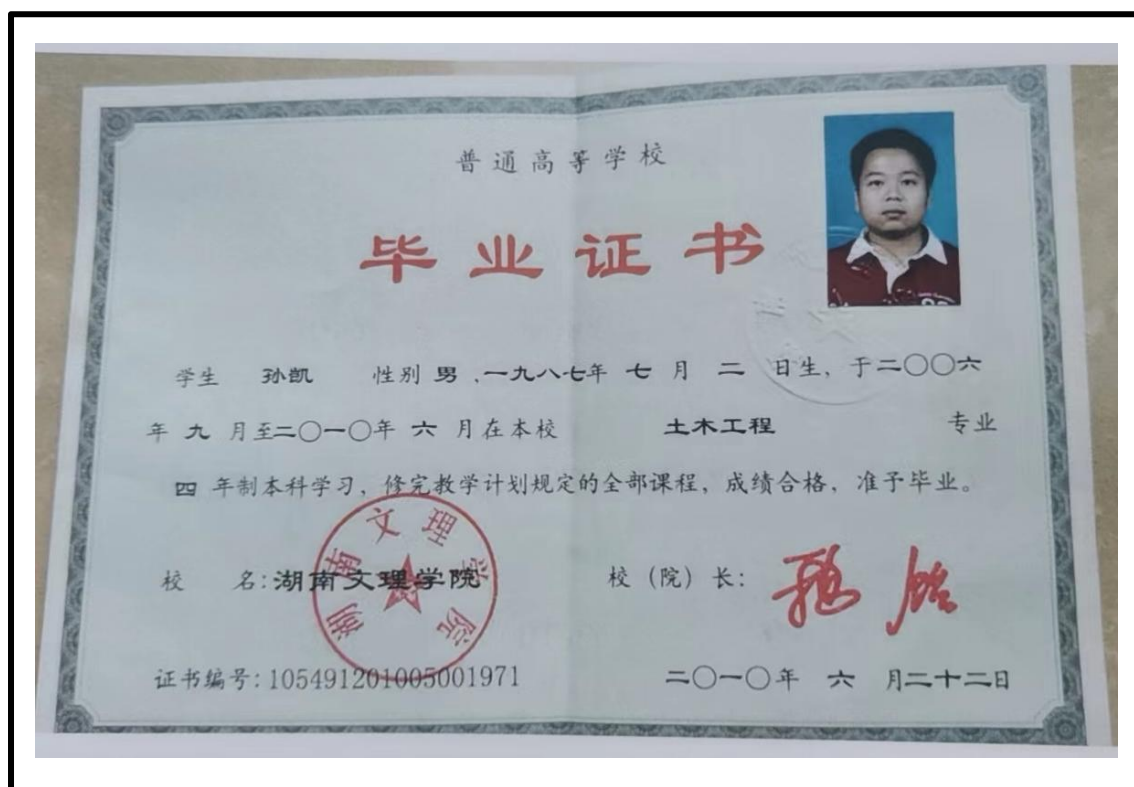 普通高等学校
毕业证书
学生 孙凯 性别 男 ,一九八七年 七 月 二 日生, 于二〇〇六
年 九 月至二〇一〇年 六 月在本校 土木工程 专业
四 年制本科学习, 修完教学计划规定的全部课程, 成绩合格, 准予毕业。
湖南文理学院
校 名: 湖南文理学院 校（院）长:
证书编号: 105491201005001971 二〇一〇年 六 月二十二日